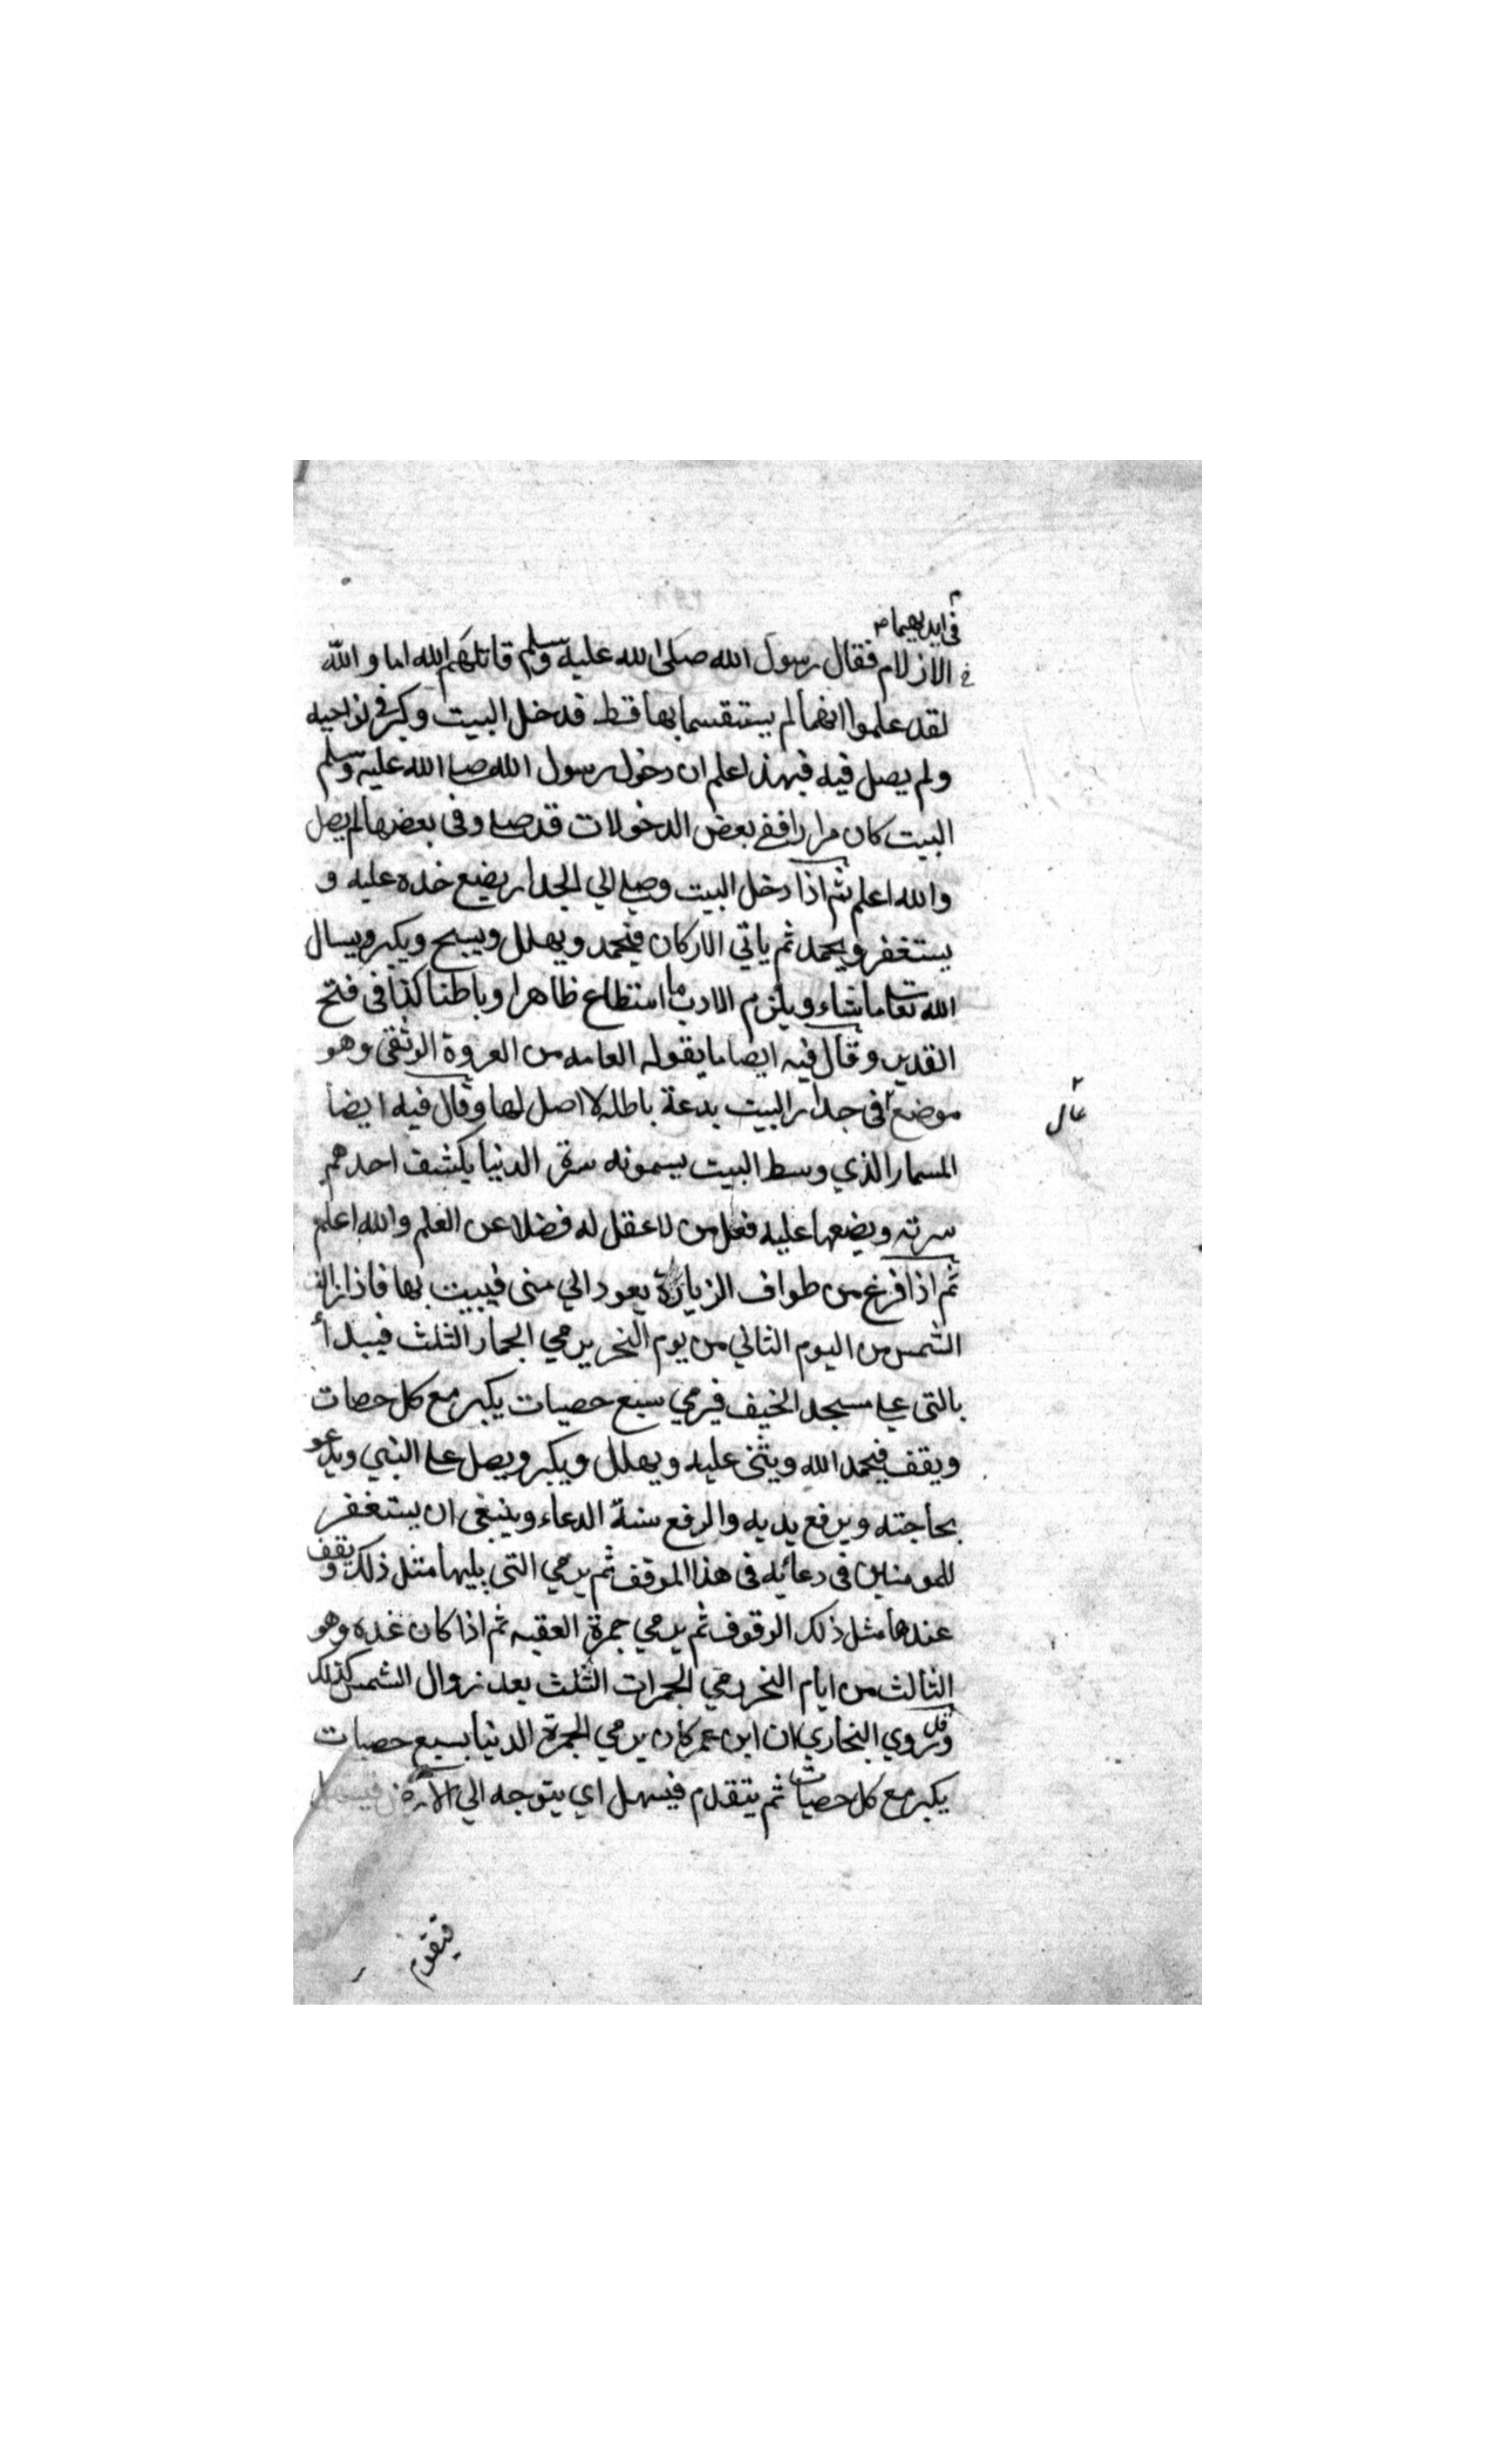 في ايديهما
الازلام فقال رسول الله صلى الله عليه وسلم قاتلهم الله اما والله
لقد علموا انهما لم يستقسما بها قط فدخل البيت وكبر في نواحيه
ولم يصل فيه فبهذا علم ان دخول رسول الله صلى الله عليه وسلم
البيت كان مرارا ففي بعض الدخولات قد صلى وفي بعضها لم يصل
والله اعلم ثم اذا دخل البيت وصلى الي الجدار يضع خده عليه و
يستغفر ويحمد ثم ياتي الاركان فيحمد ويهلل ويسبح ويكبر ويسال
الله تعالى ماشاء ويلزم الادب ما استطاع ظاهرا وباطنا كذا في فتح
القدير وقال فيه ايضا ما يقوله العامه من العروة الوثقى وهو
موضع في جدار البيت بدعة باطله لا اصل لها وقال فيه ايضا
عال
المسمار الذي وسط البيت يسمونه سرة الدنيا يكشف احدهم
سرته ويضعها عليه فعل من لا عقل له فضلا عن العلم والله اعلم
ثم اذا فرغ من طواف الزيارة يعود الي منى فيبيت بها فاذا زالت
الشمس من اليوم الثاني من يوم النحر يرمي الجمار الثلث فيبدأ
بالتى على مسجد الخيف فيرمي سبع حصيات يكبر مع كل حصات
ويقف فيحمد الله ويثنى عليه ويهلل ويكبر ويصل على النبي ويدعو
بحاجته ويرفع يديه والرفع سنة الدعاء وينبغى ان يستغفر
للمومنين في دعائه في هذا الموقف ثم يرمي التى يليها مثل ذلك ويقف
عندها مثل ذلك الوقوف ثم يرمي جمرة العقبه ثم اذا كان غده وهو
الثالث من ايام النحر رمي الجمرات الثلث بعد زوال الشمس كذلك
وقد روي البخاري ان ابن عمر كان يرمي الجمرة الدنيا بسبع حصيات
يكبر مع كل حصيات ثم يتقدم فيسهل اي يتوجه الي الارض
فيقوم